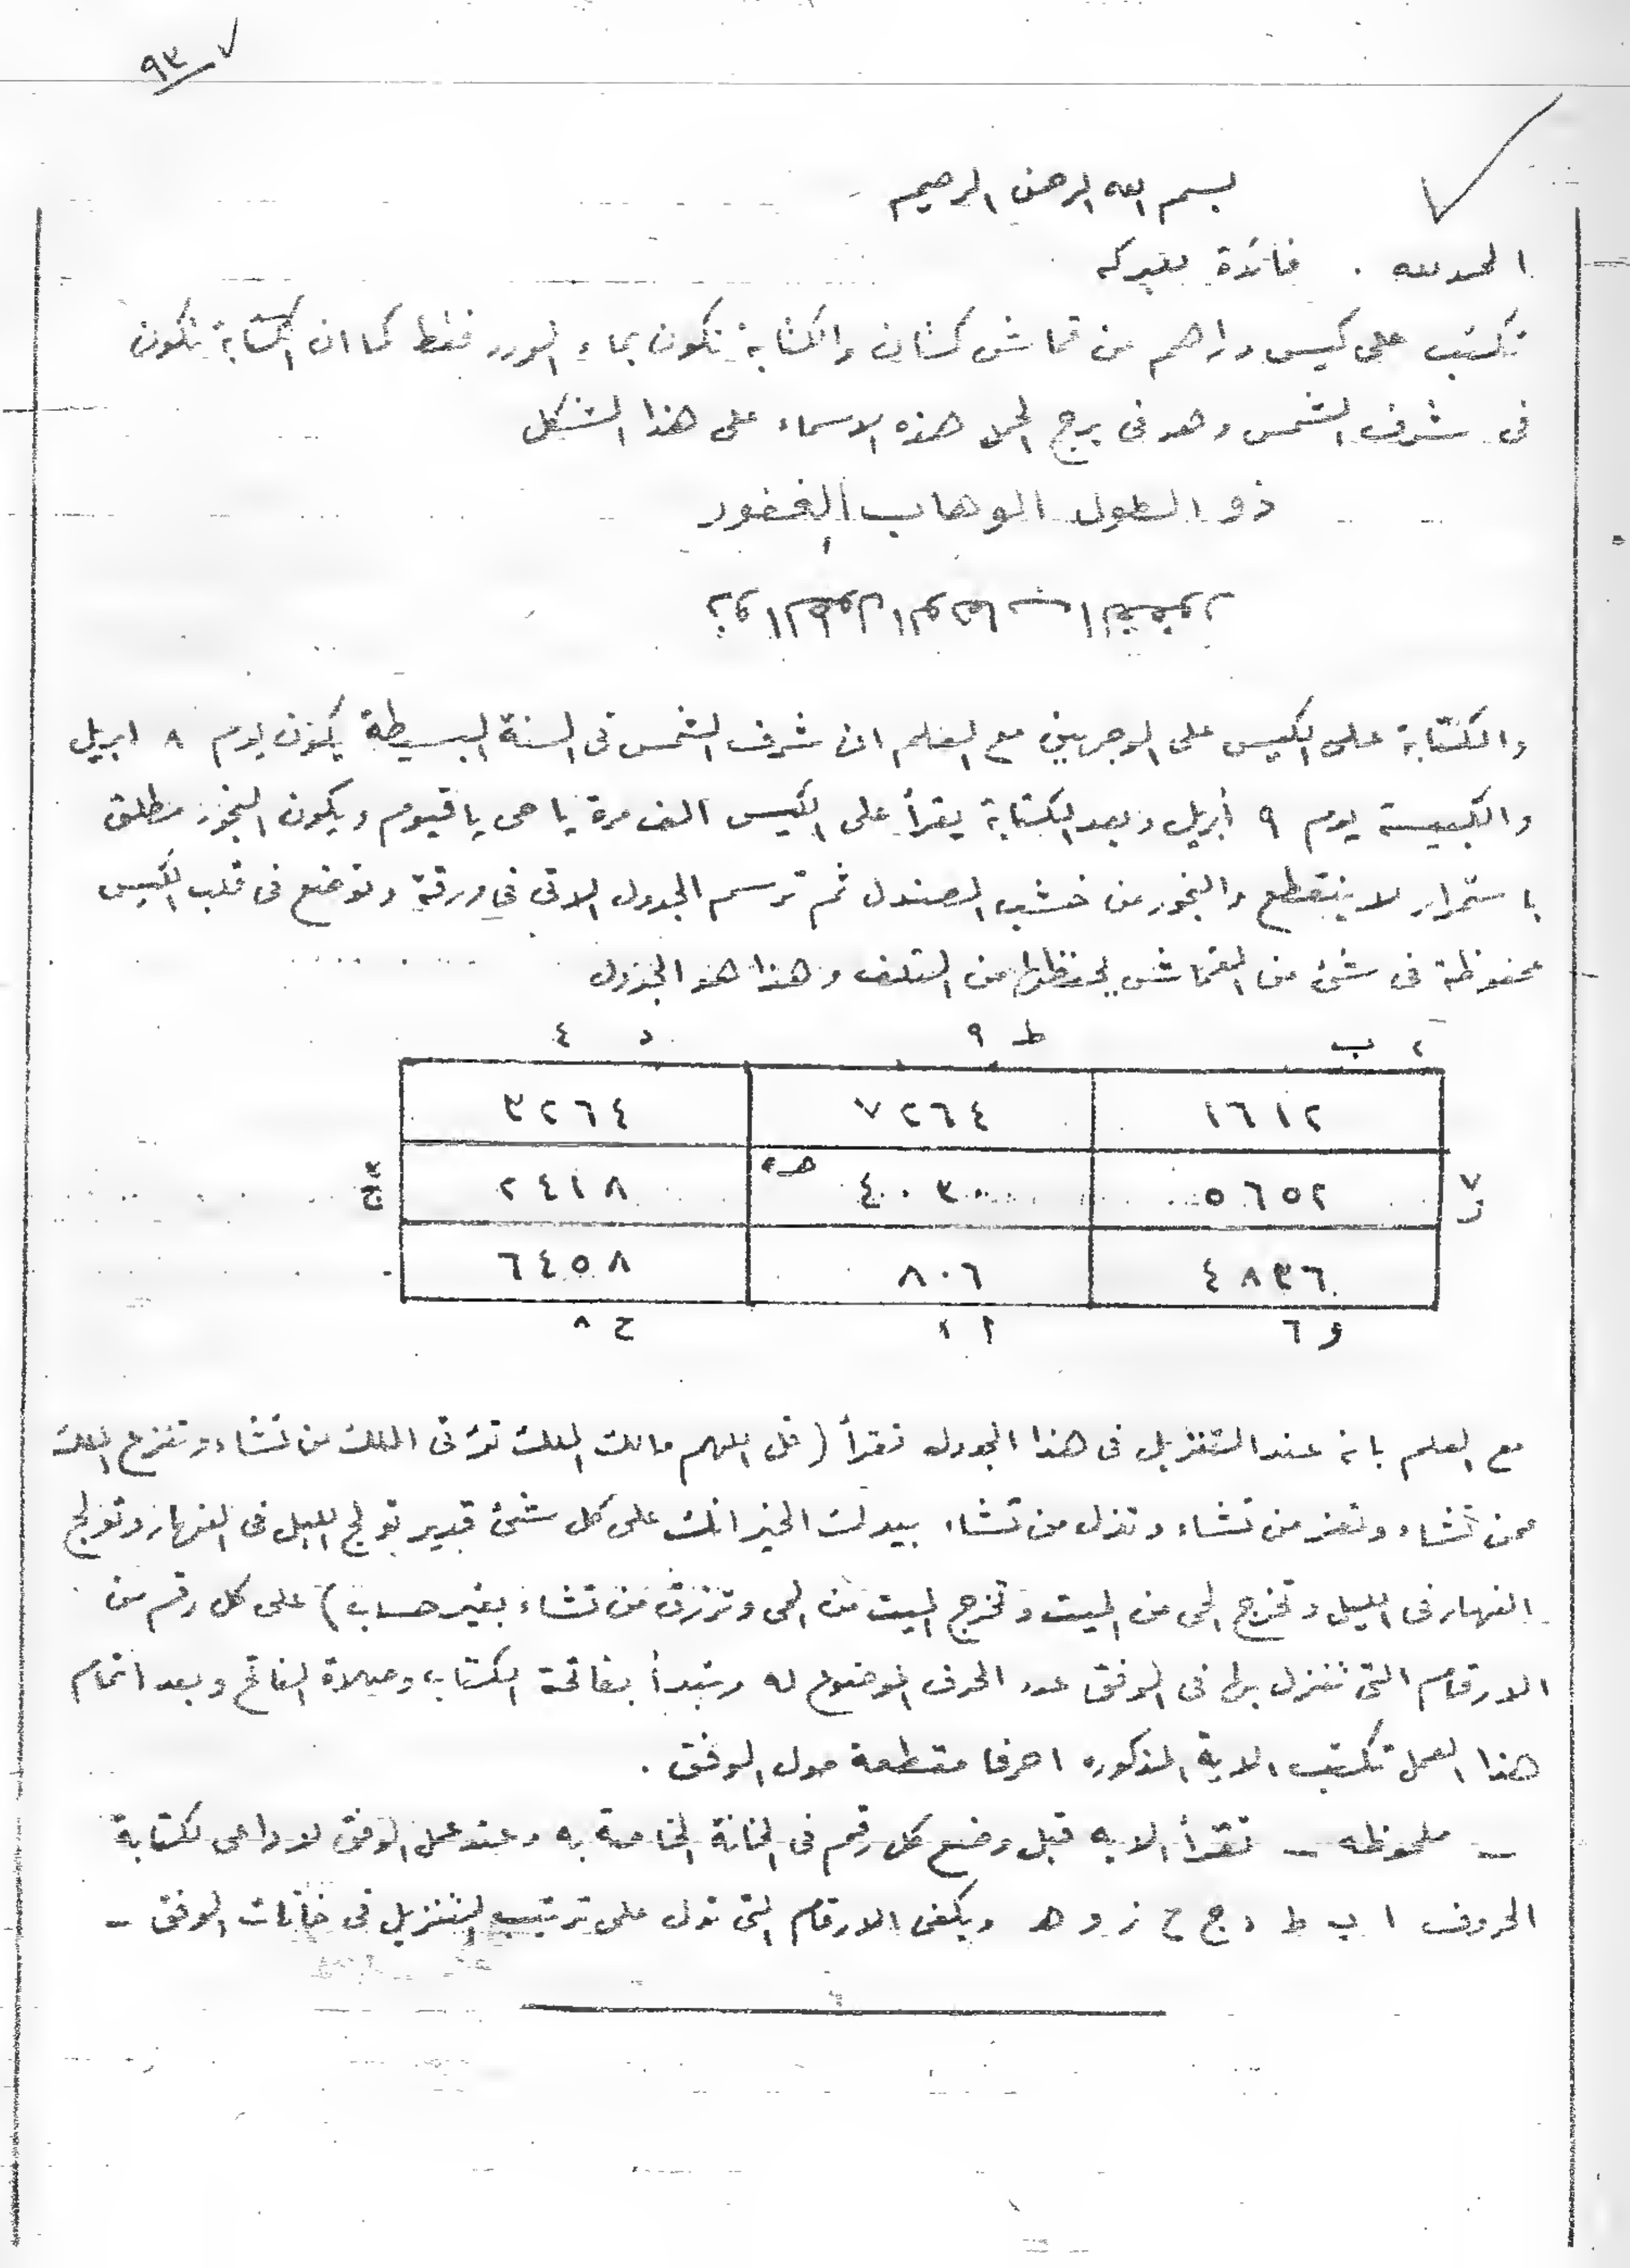 ٩٣
بسم الله الرحمن الرحيم
الحمد لله . فائدة للبركه
تكتب على كيس دراهم من قماش كتان والكتابة تكون بماء الورد فقط كما ان الكتابة تكون
فى شرف الشمس وهو فى برج الحمل هذه الاسماء على هذا الشكل
ذو الطول الوهاب الغفور
ذو الطول الوهاب الغفور
والكتابة على الكيس على الوجهين مع العلم ان شرف الشمس فى السنة البسيطة يكون يوم ٨ ابريل
والكبيسة يوم ٩ أبريل وبعد الكتابة يقرأ على الكيس الف مرة يا حى يا قيوم ويكون البخور مطلق
باستمرار لا ينقطع والبخور من خشب الصندل ثم ترسم الجدول الاتى فى ورقة وتوضع فى قلب الكيس
محفوظة فى شئ من القماش يحفظها من التلف وهذا هو الجدول
٢ ب ط ٩ د ٤
١٦١٢ ٧٢٦٤ ٣٢٦٤
٧ ز ٥٦٥٢ ٤٠٣٠ هـ ٥ ٢٤١٨ ٣ ج
٤٨٣٦ ٨٠٦ ٦٤٥٨
و ٦ أ ١ ح ٨
مع العلم بانه عند التنزيل فى هذا الجدول تقرأ (قل اللهم مالك الملك تؤتى الملك من تشاء وتنزع الملك
ممن تشاء وتعز من تشاء وتذل من تشاء بيدك الخير انك على كل شئ قدير تولج الليل فى النهار وتولج
النهار فى الليل وتخرج الحى من الميت وتخرج الميت من الحى وترزق من تشاء بغير حساب) على كل رقم من
الارقام التى تنزل بها فى الوفق عدد الحرف الموضوع له وتبدأ بفاتحة الكتاب وصلاة الفاتح وبعد اتمام
هذا العمل تكتب الاية المذكوره احرفا مقطعة حول الوفق .
ـ ملحوظه ـ تقرأ الايه قبل وضع كل رقم فى الخانة الخاصة به وعند عمل الوفق لا داعى لكتابة
الحروف ا ب ط د ج ح ز و هـ ويكفى الارقام التى تدل على ترتيب التنزيل فى خانات الوفق ـ